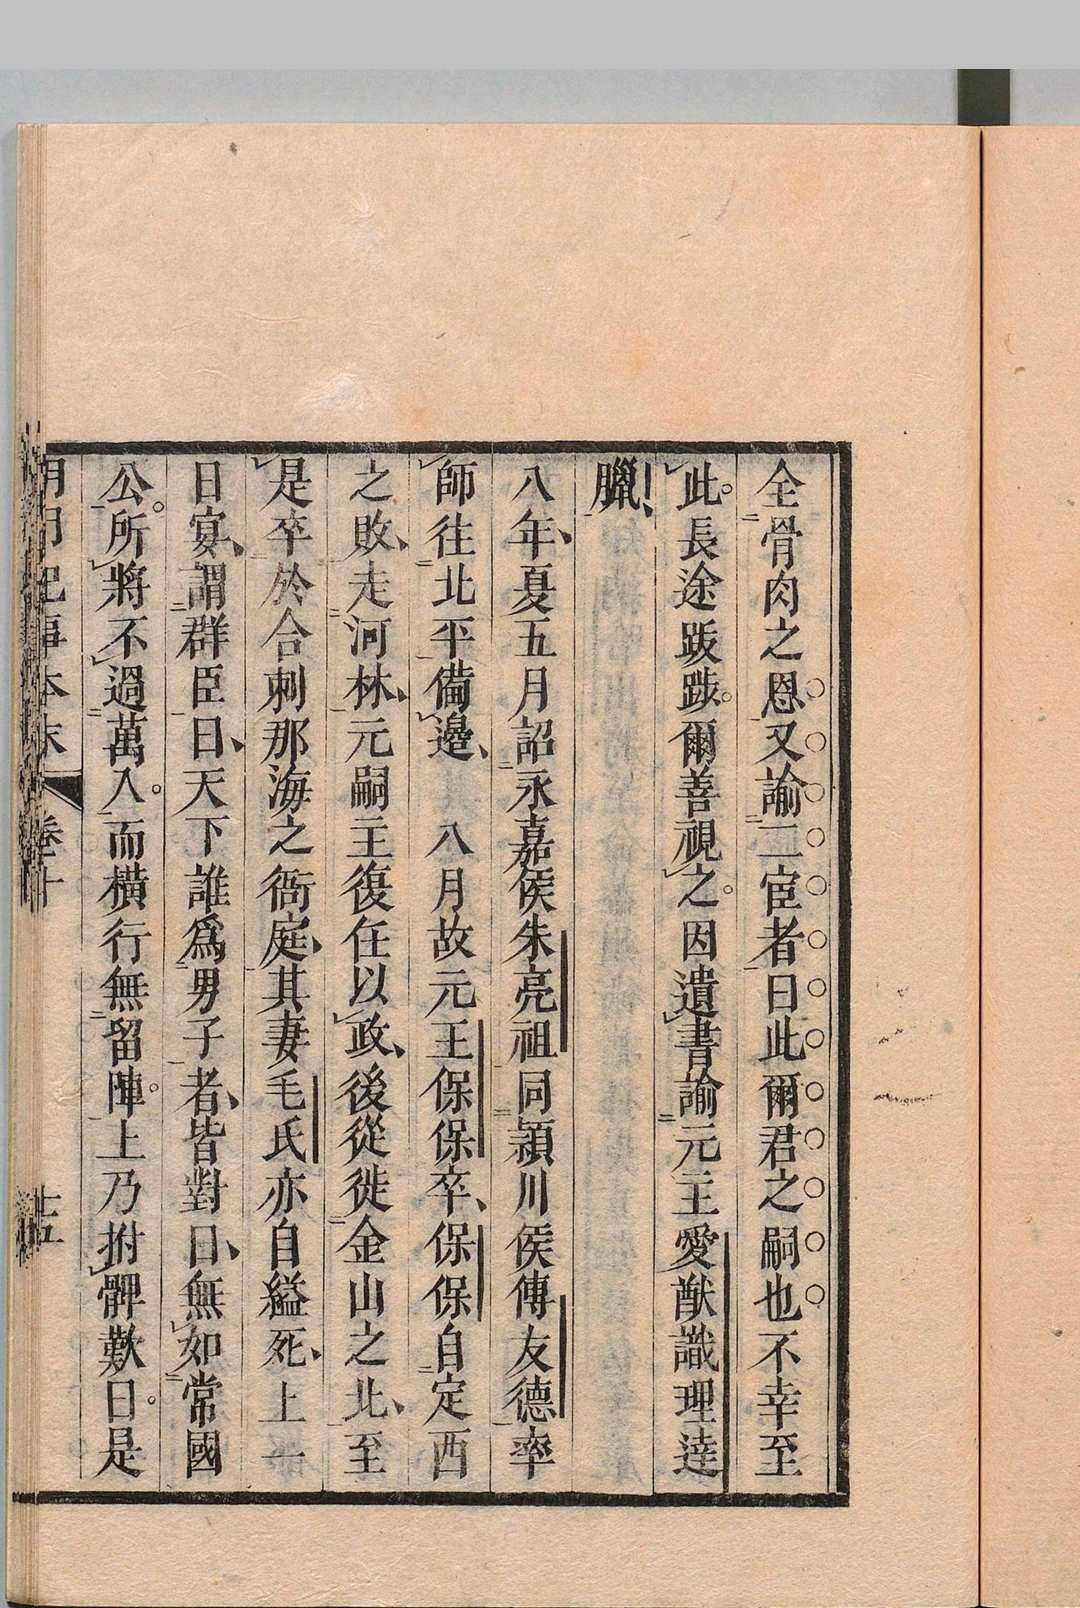 全骨肉之恩又諭二宦者曰此爾君之嗣也不幸至
此長途跋踄爾善視之因遺書諭元主愛猷識理達
臘
八年夏五月詔永嘉侯朱亮祖同潁川侯傅友德率
師往北平備邊 八月故元王保保卒保保自定西
之敗走河林元嗣主復任以政後從徙金山之北至
是卒於合刺那海之衙庭其妻毛氏亦自縊死上一
日宴謂群臣曰天下誰爲男子者皆對曰無如常國
公所將不過萬人而橫行無留陣上乃拊髀歎曰是
明朝紀事本末 卷十 十五